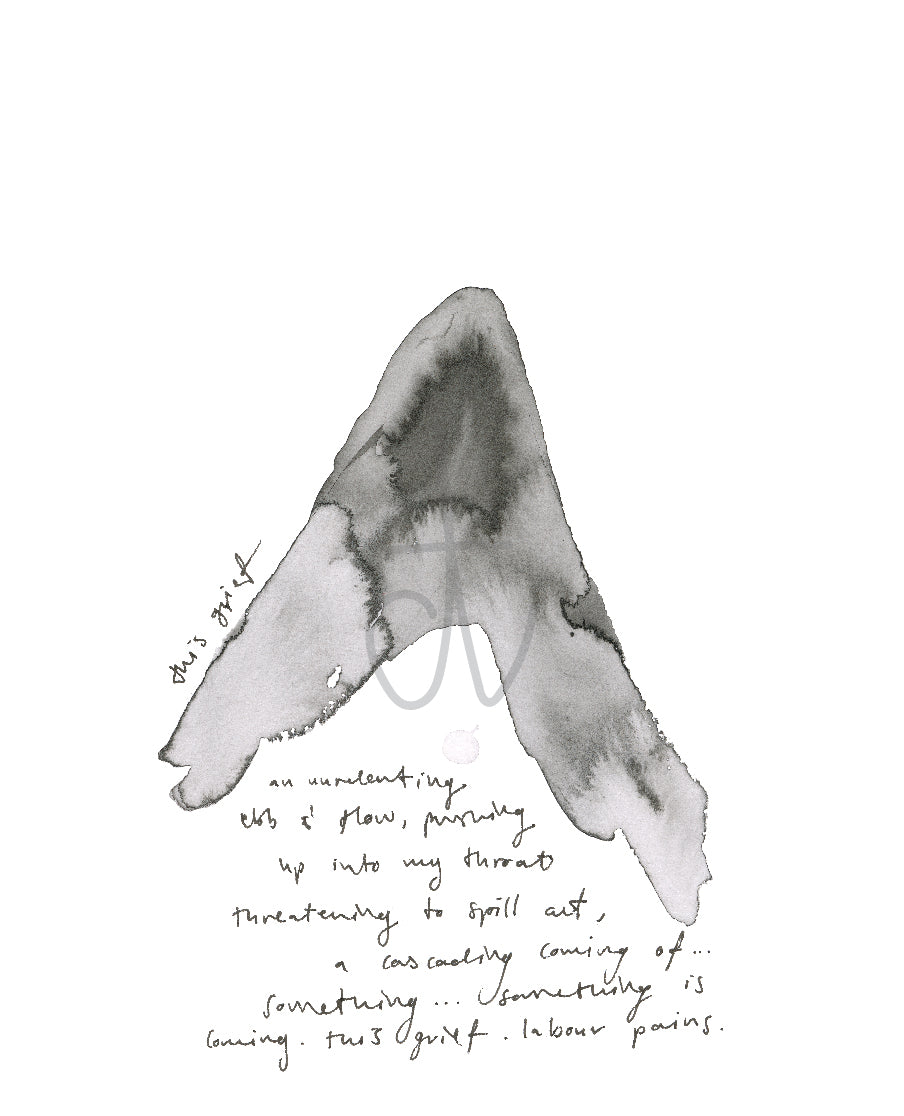 this grief
an unrelenting
ebb & flow, pushing
up into my throat
threatening to spill out,
a cascading coming of...
something... something is
coming. this grief. labour pains.